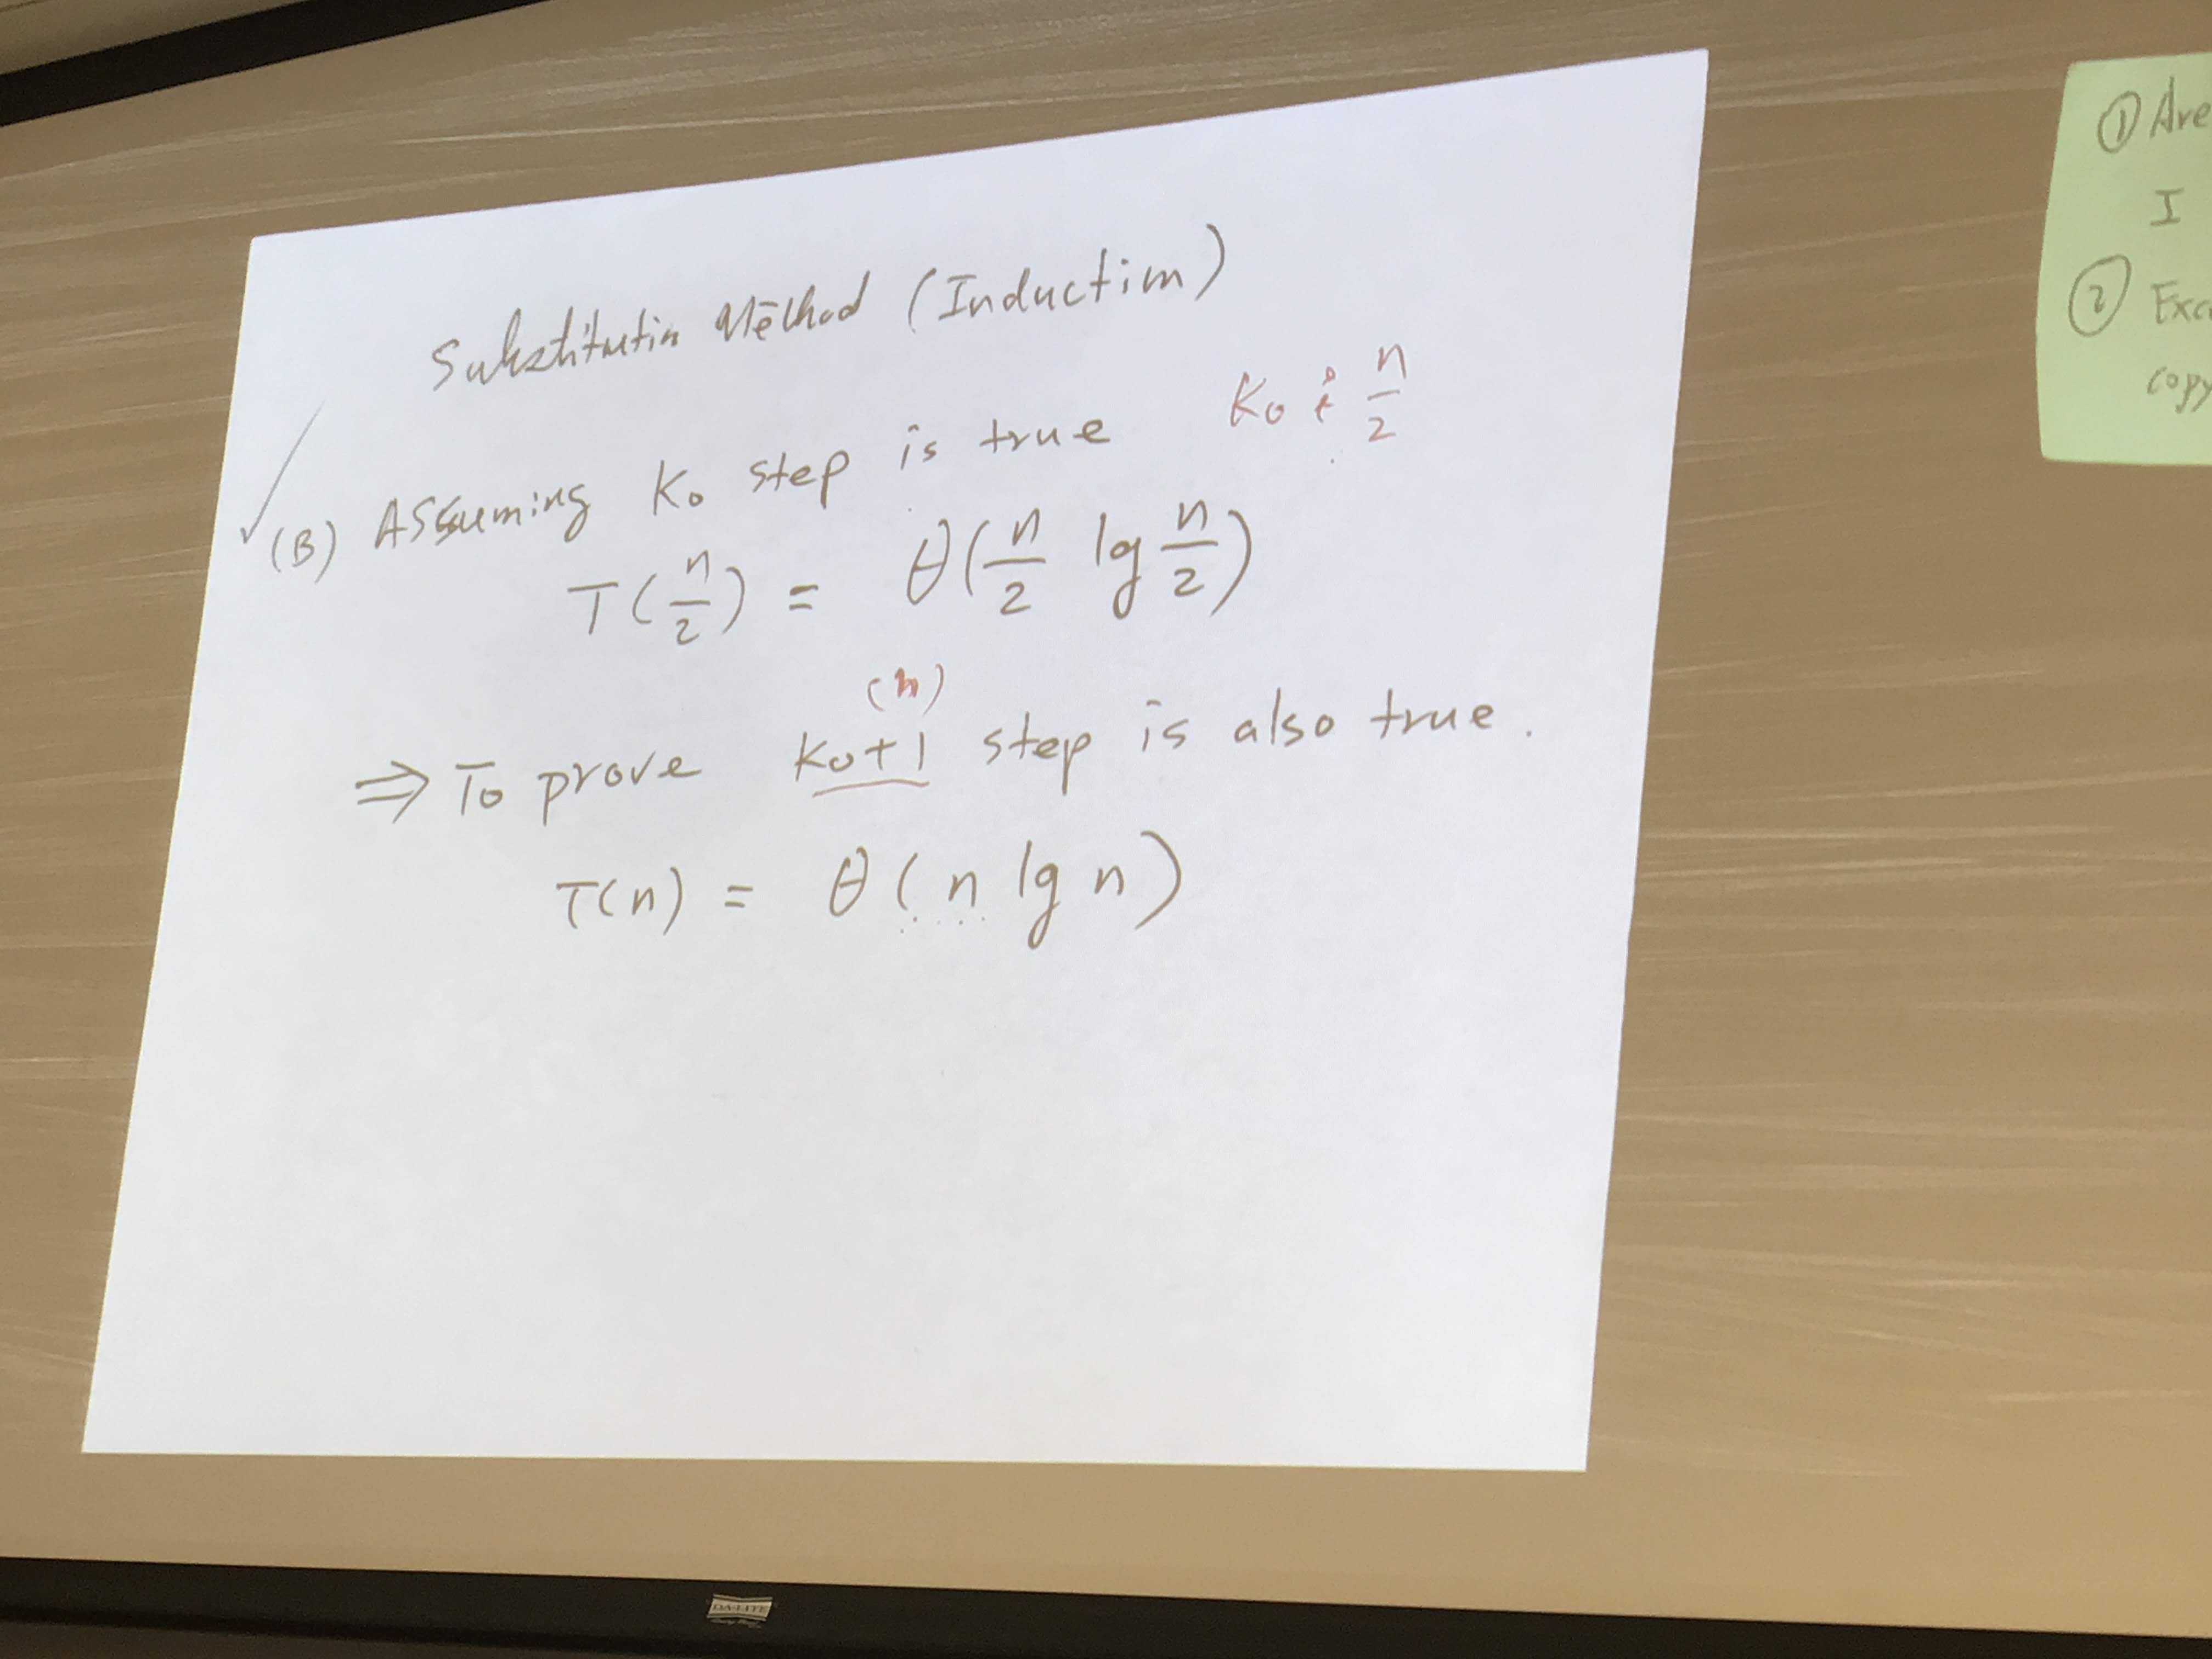 Substitutin Method (Induction)
(B) Assuming K₀ step is true K₀ : n/2
T(n/2) = θ(n/2 lg n/2)
(n)
⇒ To prove K₀+1 step is also true.
T(n) = θ(n lg n)
① Are
I
② Exa
copy
DA-LITE